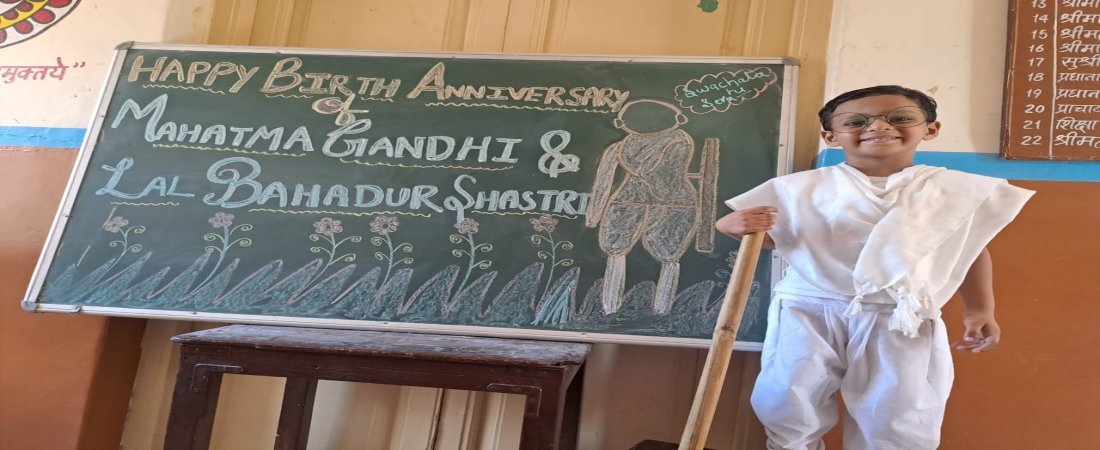 HAPPY BIRTH ANNIVERSARY
of
MAHATMA GANDHI &
LAL BAHADUR SHASTRI
Swachata
hi
Seva
मुक्तये”
13 श्रीम
14 श्रीम
15 श्रीम
16 श्रीम
17 सुश्री
18 प्रधाना
19 प्रधान
20 प्राचा
21 शिक्षा
22 श्रीम